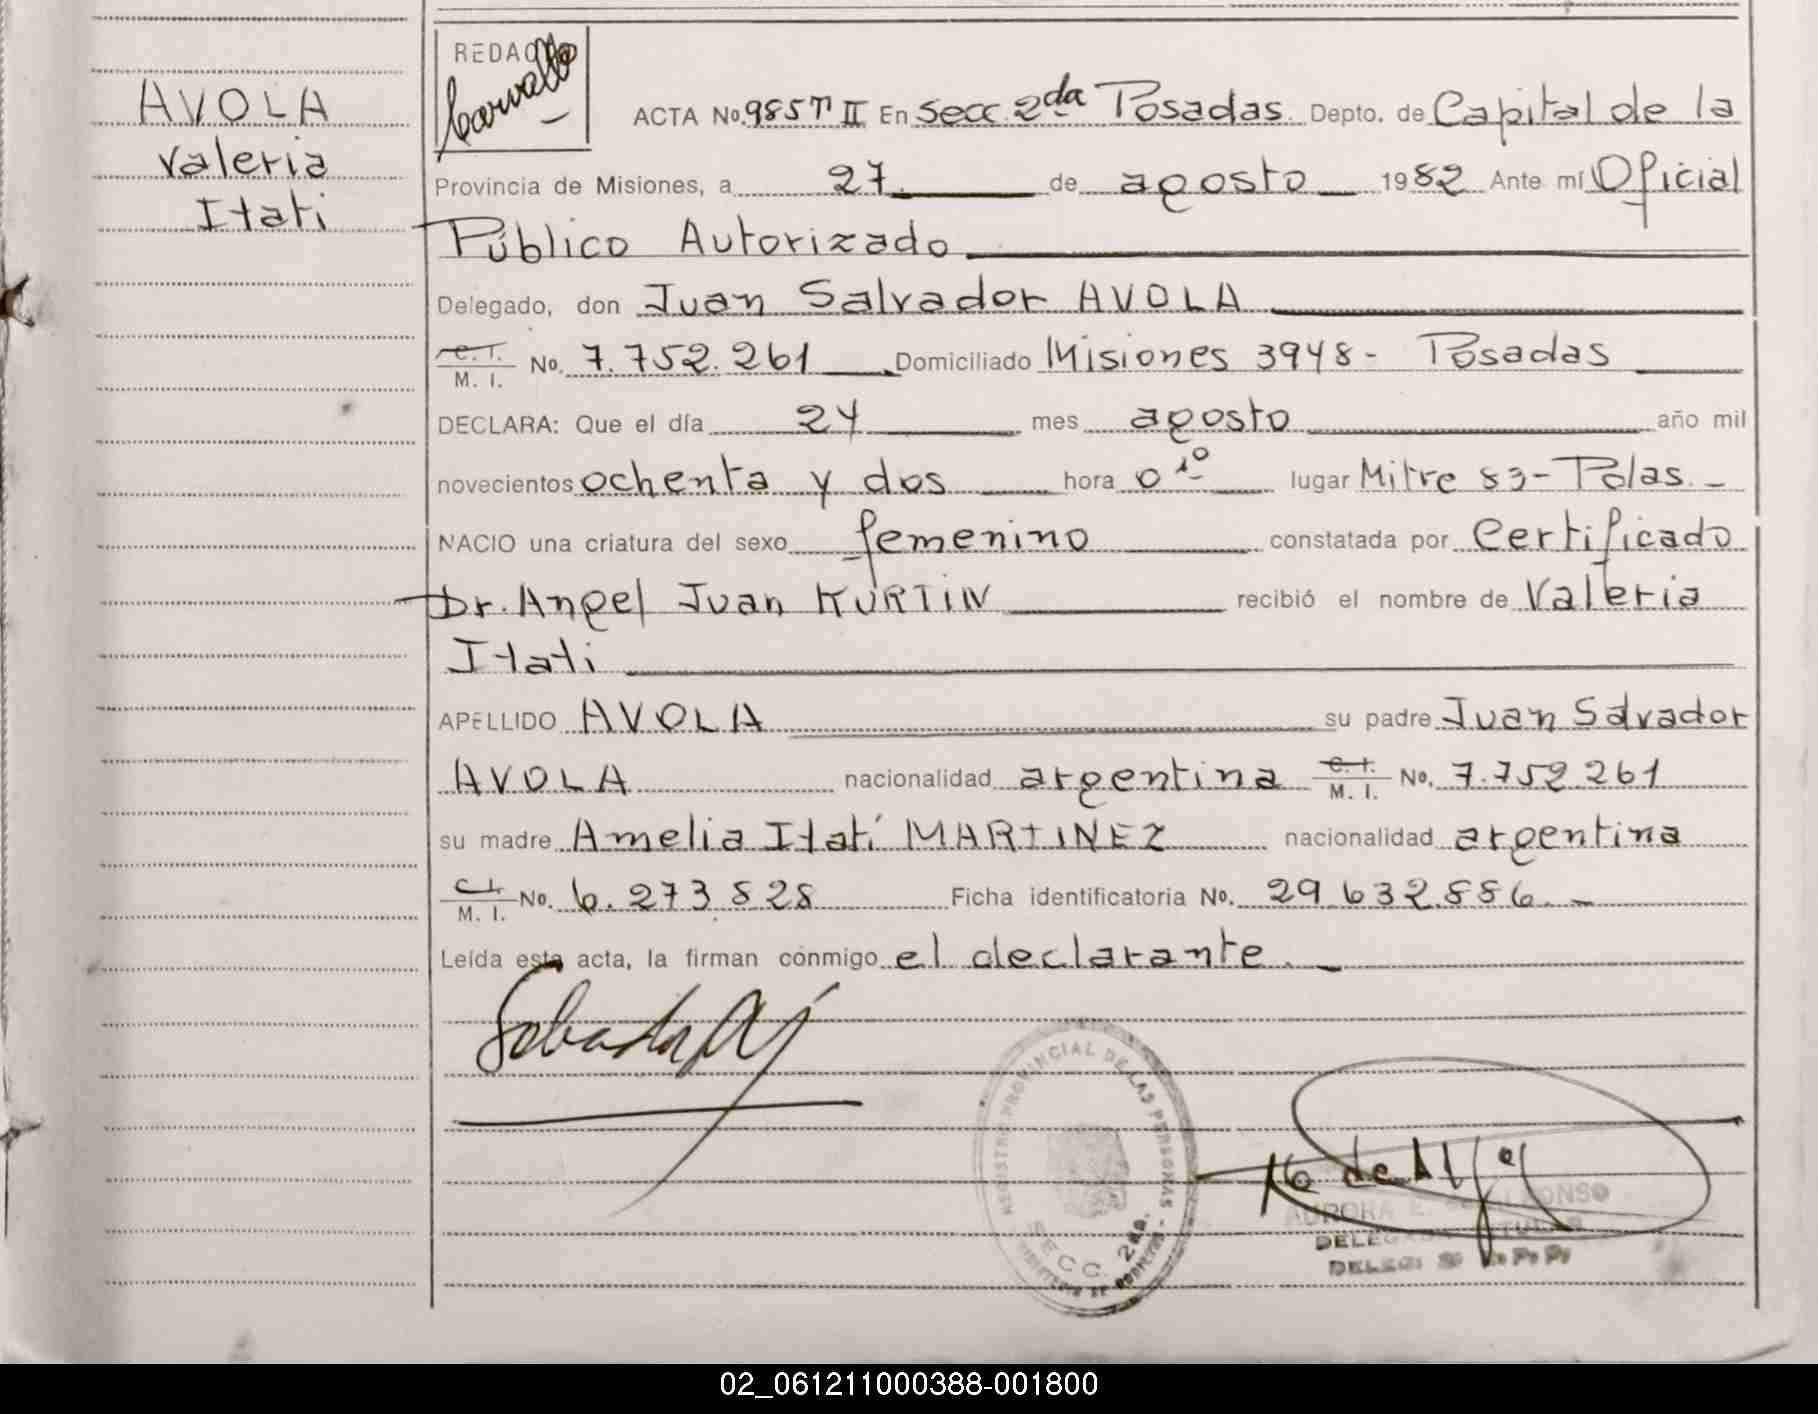 AVOLA
Valeria
Itati
REDAC
Carvallo
ACTA No. 985 TºII En Secc. 2da Posadas. Depto. de Capital de la
Provincia de Misiones, a 27. de agosto 1982 Ante mí Oficial
Público Autorizado
Delegado, don Juan Salvador AVOLA
C.I. M. I. No. 7.752.261 Domiciliado Misiones 3948 - Posadas
DECLARA: Que el día 24 mes agosto año mil
novecientos ochenta y dos hora 0 10 lugar Mitre 83 - Pdas. -
NACIO una criatura del sexo femenino constatada por Certificado
Dr. Angel Juan KURTIN recibió el nombre de Valeria
Itati
APELLIDO AVOLA su padre Juan Salvador
AVOLA nacionalidad argentina C.I. M. I. No. 7.752.261
su madre Amelia Itatí MARTINEZ nacionalidad argentina
C.I. M. I. No. 6.273.828 Ficha identificatoria No. 29.632.886. -
Leída esta acta, la firman conmigo el declarante. -
REGISTRO PROVINCIAL DE LAS PERSONAS -
SECC. 2da.
AURORA E. DE ALFONSO
DELEGADA TITULAR
02_061211000388-001800